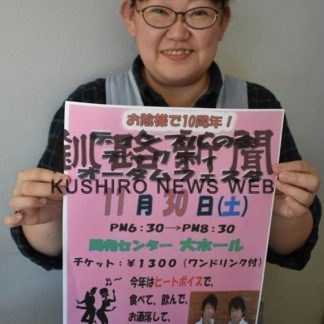 お陰様で10周年！
釧路新聞
KUSHIRO NEWS WEB
11月30日(土)
PM6:30→PM8:30
開発センター 大ホール
チケット：￥1300（ワンドリンク付）
今年はヒートボイスで、
食べて、飲んで、
お洒落して、